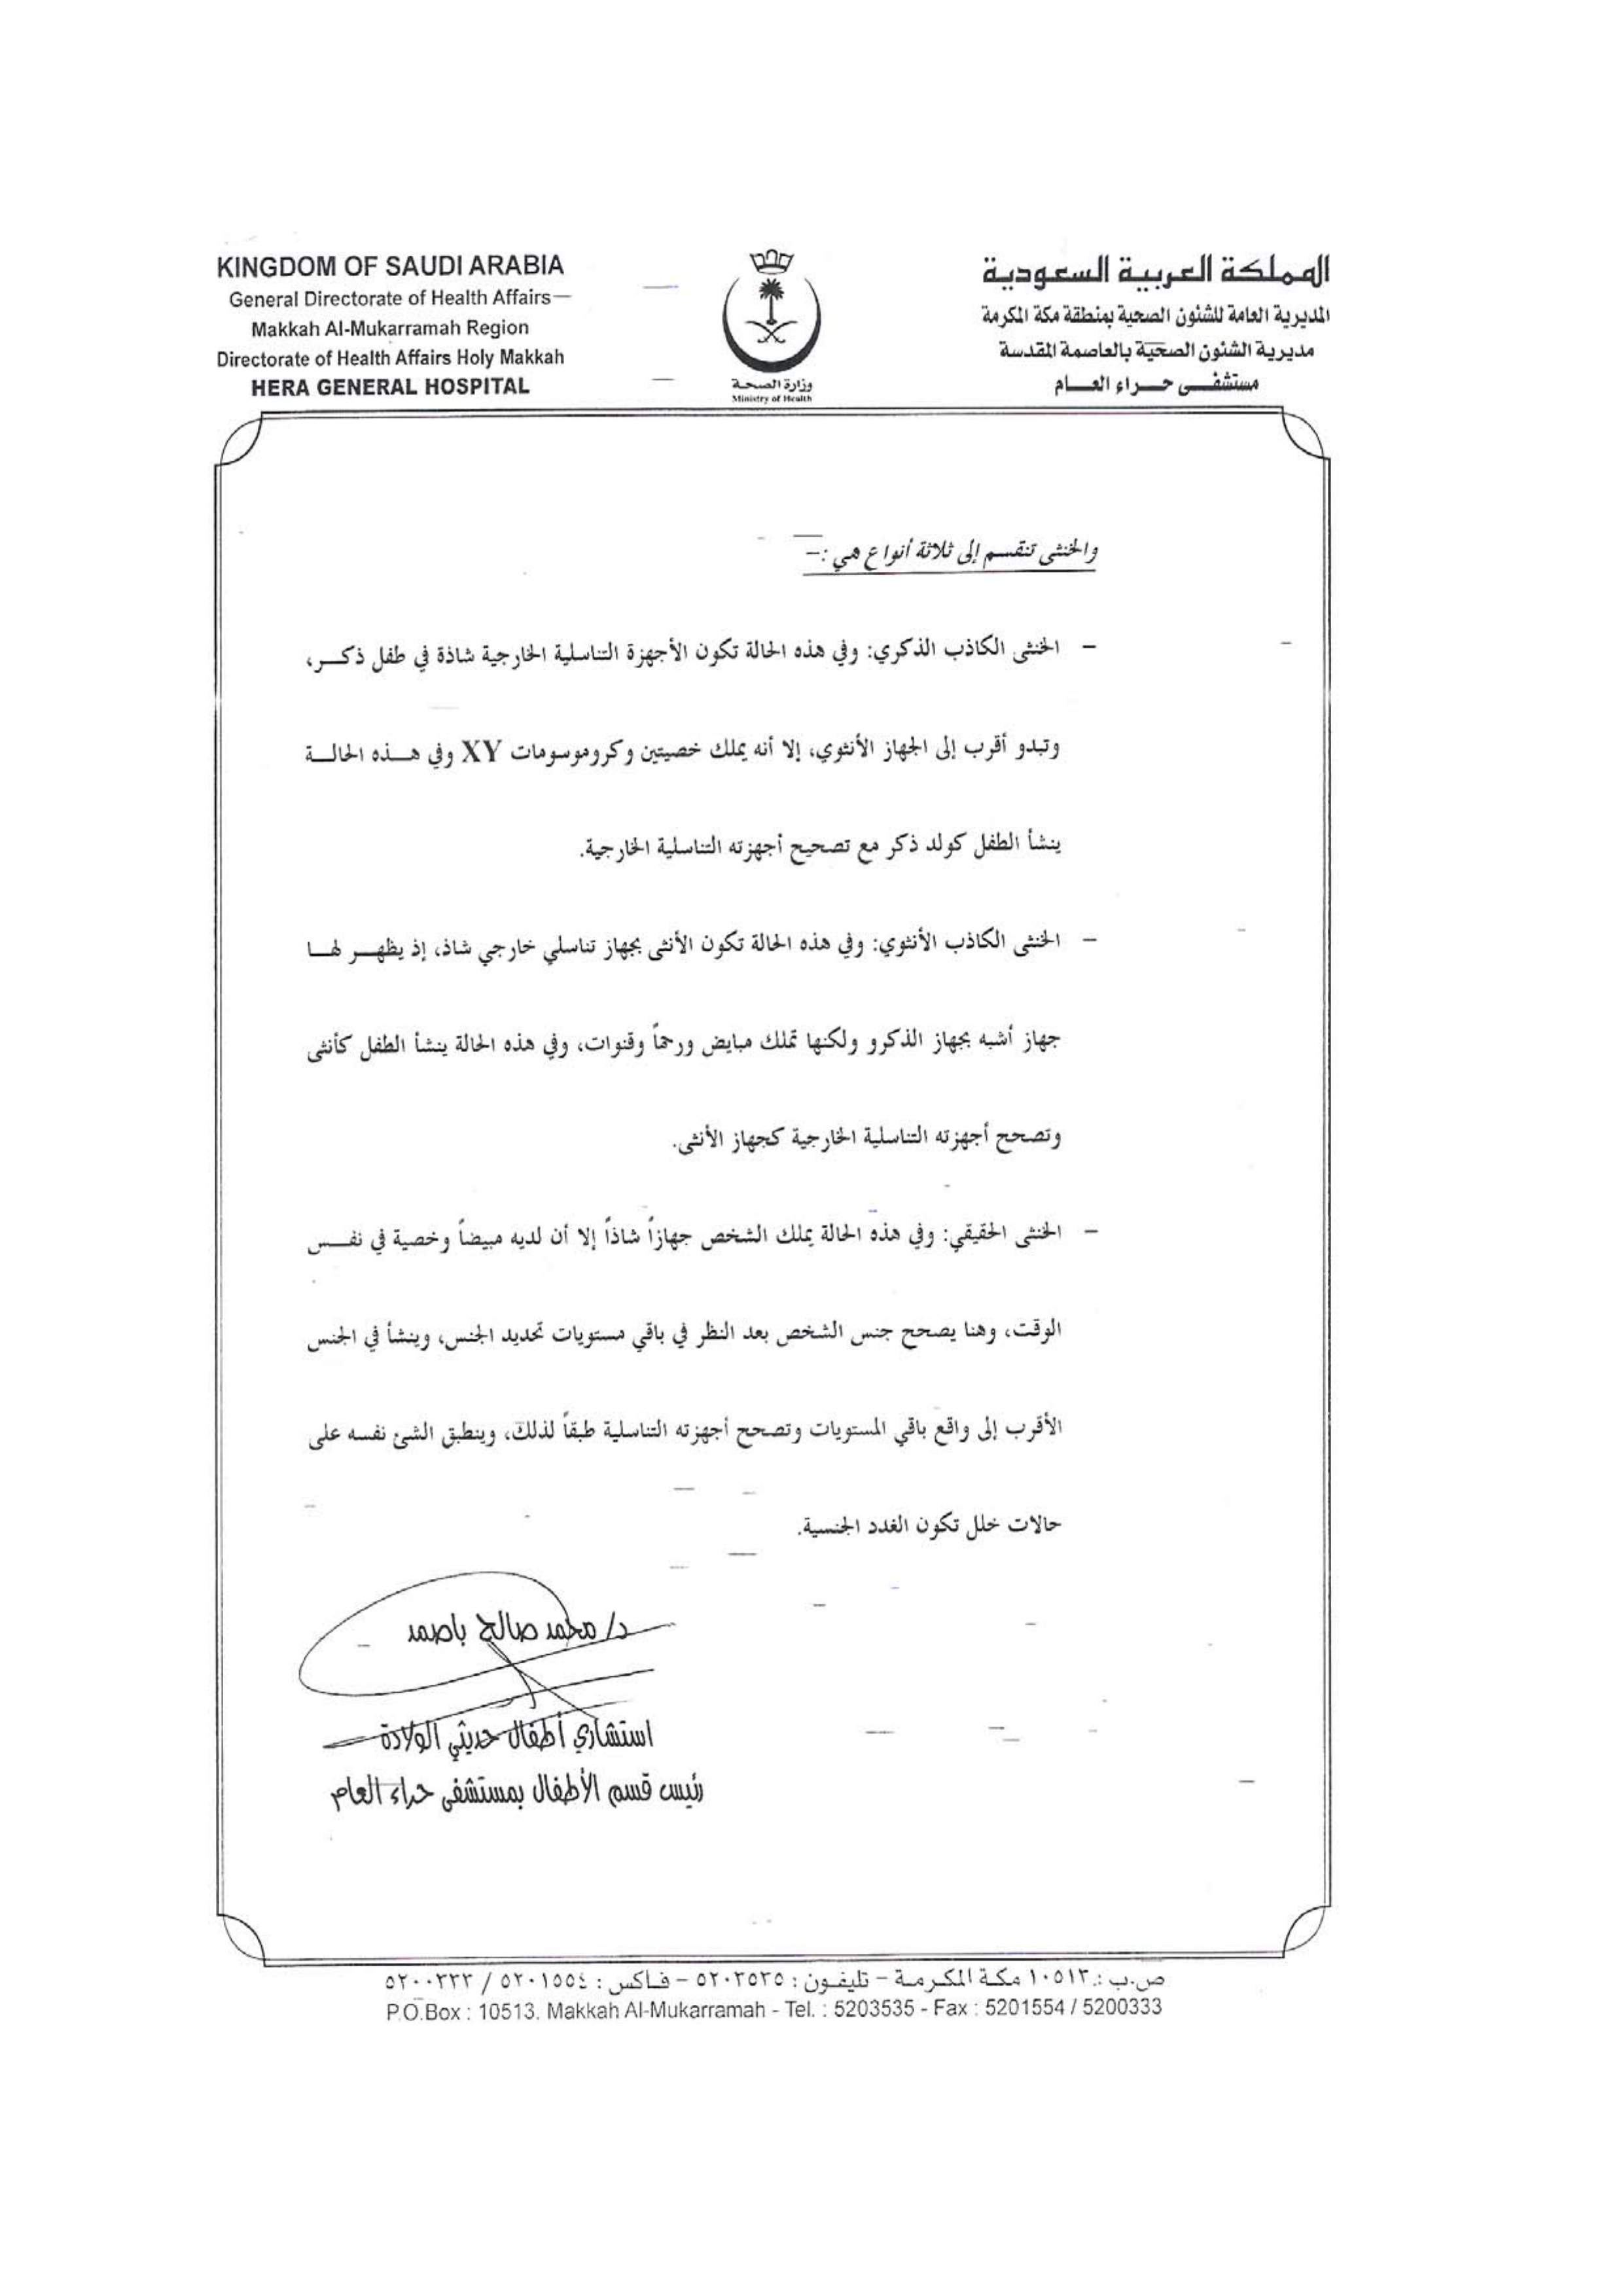 KINGDOM OF SAUDI ARABIA
General Directorate of Health Affairs
Makkah Al-Mukarramah Region
Directorate of Health Affairs Holy Makkah
HERA GENERAL HOSPITAL
وزارة الصحة
Ministry of Health
المملكة العربية السعودية
المديرية العامة للشئون الصحية بمنطقة مكة المكرمة
مديرية الشئون الصحية بالعاصمة المقدسة
مستشفى حراء العام
والخنثى تنقسم إلى ثلاثة أنواع هي :-
- الخنثى الكاذب الذكري: وفي هذه الحالة تكون الأجهزة التناسلية الخارجية شاذة في طفل ذكر،
وتبدو أقرب إلى الجهاز الأنثوي، إلا أنه يملك خصيتين وكروموسومات XY وفي هذه الحالة
ينشأ الطفل كولد ذكر مع تصحيح أجهزته التناسلية الخارجية.
- الخنثى الكاذب الأنثوي: وفي هذه الحالة تكون الأنثى بجهاز تناسلي خارجي شاذ، إذ يظهر لها
جهاز أشبه بجهاز الذكرو ولكنها تملك مبايض ورحماً وقنوات، وفي هذه الحالة ينشأ الطفل كأنثى
وتصحح أجهزته التناسلية الخارجية كجهاز الأنثى.
- الخنثى الحقيقي: وفي هذه الحالة يملك الشخص جهازاً شاذاً إلا أن لديه مبيضاً وخصية في نفس
الوقت، وهنا يصحح جنس الشخص بعد النظر في باقي مستويات تحديد الجنس، وينشأ في الجنس
الأقرب إلى واقع باقي المستويات وتصحح أجهزته التناسلية طبقاً لذلك، وينطبق الشئ نفسه على
حالات خلل تكون الغدد الجنسية.
د/ محمد صالح باصمد
استشاري أطفال حديثي الولادة
رئيس قسم الأطفال بمستشفى حراء العام
ص.ب : ١٠٥١٣ مكة المكرمة - تليفون : ٥٢٠٣٥٣٥ - فاكس : ٥٢٠١٥٥٤ / ٥٢٠٠٣٣٣
P.O.Box : 10513. Makkah Al-Mukarramah - Tel. : 5203535 - Fax : 5201554 / 5200333